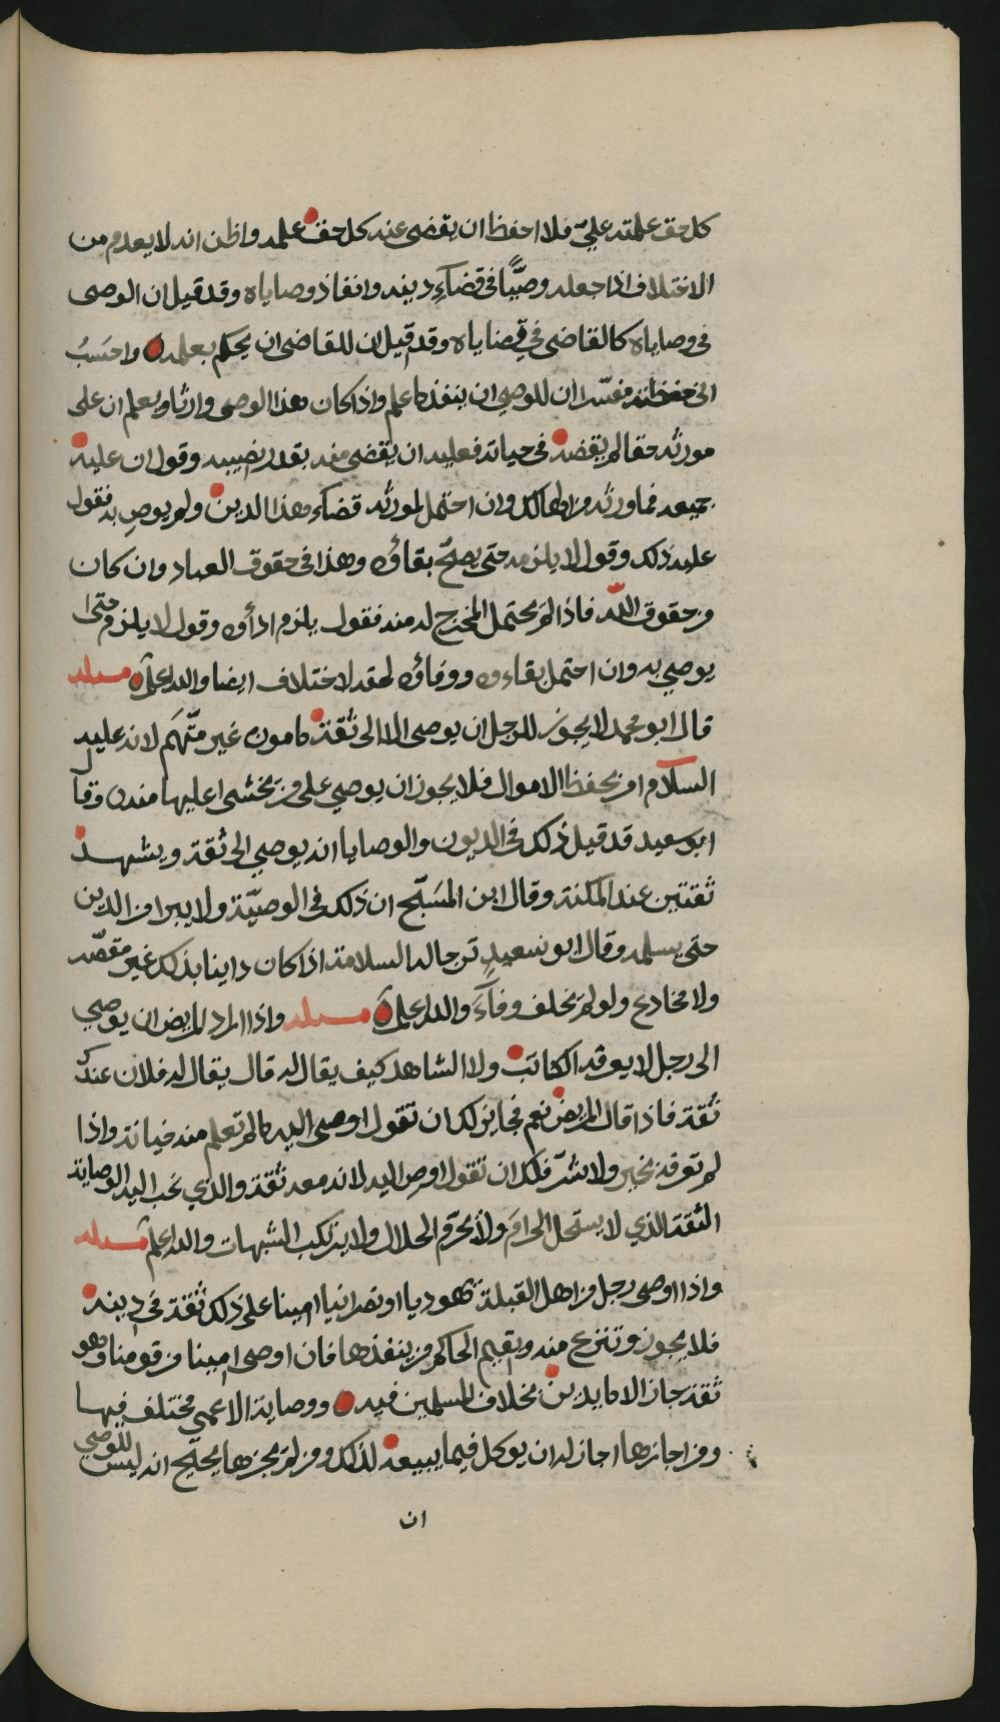 كل حق علمته عليّ فلا احفظ ان يقضى عنه كل حق علمه واظن انه لا يعدم من
الاختلاف اذا جعله وصيًّا في قضآء دينه وانفاذ وصاياه وقد قيل ان الوصي
في وصاياه كالقاضي في قضاياه وقد قيل ان للقاضي ان يحكم بعلمه واحسَبُ
اني حفظته مفسّرا ان للوصي ان ينفذ ما علم واذا كان هذا الوصي وارثا ويعلم ان على
مورثه حقا لم يقضه في حياته فعليه ان يقضي منه بقدر نصيبه وقول ان عليه
جميعه فما ورثه من الهالك وان احتمل لمورثه قضاء هذا الدين ولم يوص به فقول
عليه ذلك وقول لا يلزمه حتى يصحّ بقاؤه وهذا في حقوق العباد وان كان
من حقوق الله فاذا لم يحتمل المخرج له منه فقول يلزم اداؤه وقول لا يلزم حتى
يوصي به وان احتمل بقاءه ووفاؤه لحقه الاختلاف ايضا والله اعلم مسئله
قال ابو محمد لا يجوز للرجل ان يوصى الا الى ثقة مامون غير متّهَم لانه عليه
السلام امر بحفظ الاموال فلا يجوز ان يوصي على من يخشى عليها منه وقال
ابو سعيد قد قيل ذلك في الديون والوصايا انه يوصي الى ثقة ويشهد
ثقتين عند المكنة وقال ابن المسَبّح ان ذلك في الوصيّة ولا يبرا من الدين
حتى يسلمه وقال ابو سعيدٍ ترجا له السلامة اذا كان داينا بذلك غير مقصّر
ولا مخادع ولو لم يخلف وفآءً والله اعلم مسئله واذا اراد المريض ان يوصي
الى رجل لا يعرفه الكاتب ولا الشاهد كيف يقال له قال يقال له فلان عندك
ثقة فاذا قال المريض نعم فجايز لك ان تقول اوصي اليه ما لم تعلم منه خيانة واذا
لم تعرفه بخير ولا شرّ فلك ان تقول اوص اليه لانه معه ثقة والذي تجب اليه الوصاية
الثقة الذي لا يستحل الحرامَ ولا يحرّم الحلال ولا يرتكب الشبهات والله اعلم مسئله
واذا اوصى رجل من اهل القبلة يهوديا او نصرانيا امينا على ذلك ثقة في دينه
فلا يجوز وتنزع منه ويقيم الحاكم من ينفذها فان اوصى امينا من قومنا وهو
ثقة جاز الا ما يدين بخلاف المسلمين فيه ووصاية الاعمى مختلف فيها
ومن اجازها اجاز له ان يوكل فيما يبيعه لذلك ومن لم يجزها يحتج انه ليس للوصي
ان